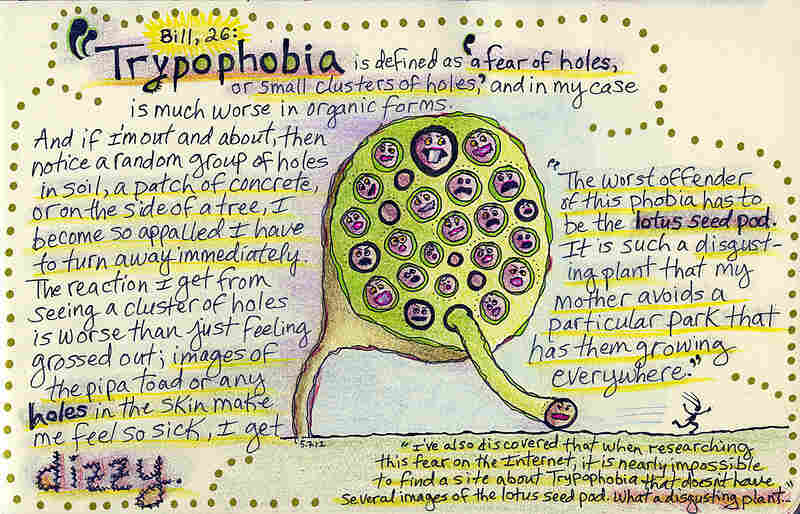 Bill, 26:
"Trypophobia is defined as "a fear of holes,
or small clusters of holes," and in my case
is much worse in organic forms.
And if I'm out and about, then
notice a random group of holes
in soil, a patch of concrete,
or on the side of a tree, I
become so appalled I have
to turn away immediately.
The reaction I get from
seeing a cluster of holes
is worse than just feeling
grossed out; images of
the pipa toad or any
holes in the skin make
me feel so sick, I get
dizzy.
"The worst offender
of this phobia has to
be the lotus seed pod.
It is such a disgust-
ing plant that my
mother avoids a
particular park that
has them growing
everywhere."
5.7.12
"I've also discovered that when researching
this fear on the Internet, it is nearly impossible
to find a site about Trypophobia that doesn't have
several images of the lotus seed pod. What a disgusting plant..."